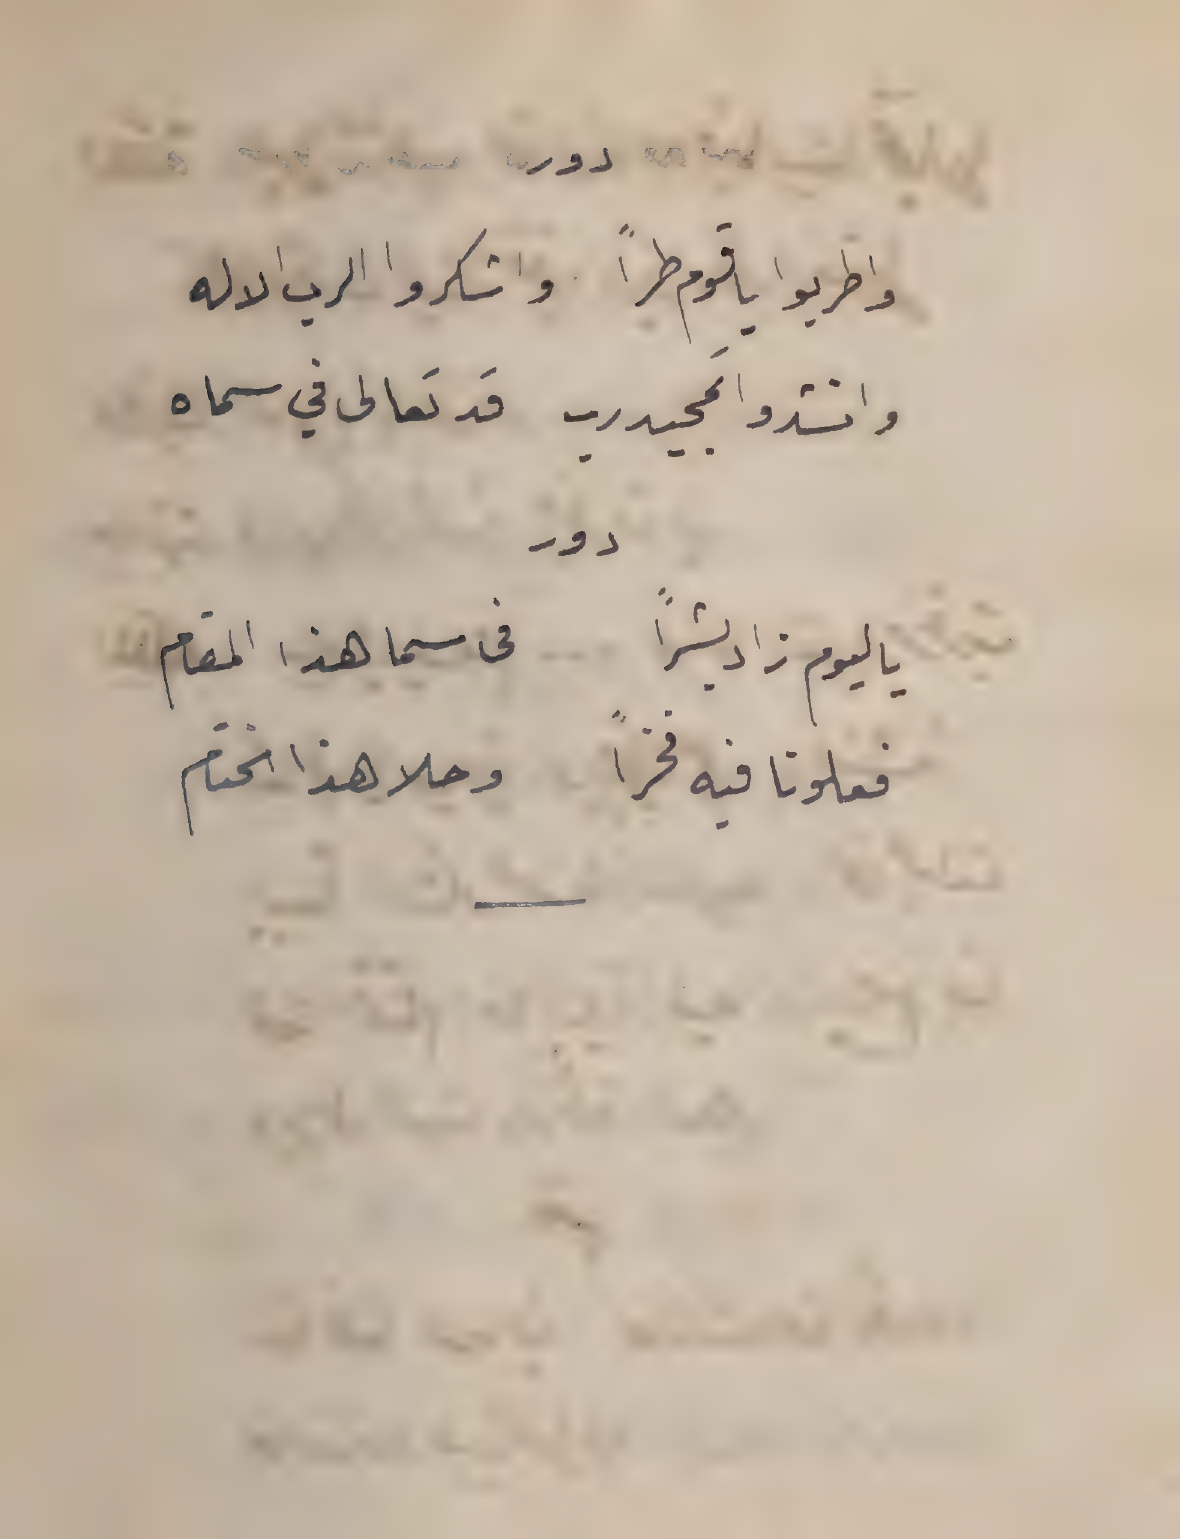 دور
واطربوا ياقوم طراً واشكروا الرب الاله
وانشدوا تمجيد رب قد تعالى في سماه
دور
ياليوم زاد بشراً في سما هذا المقام
فعلونا فيه فخراً وحلا هذا الختام